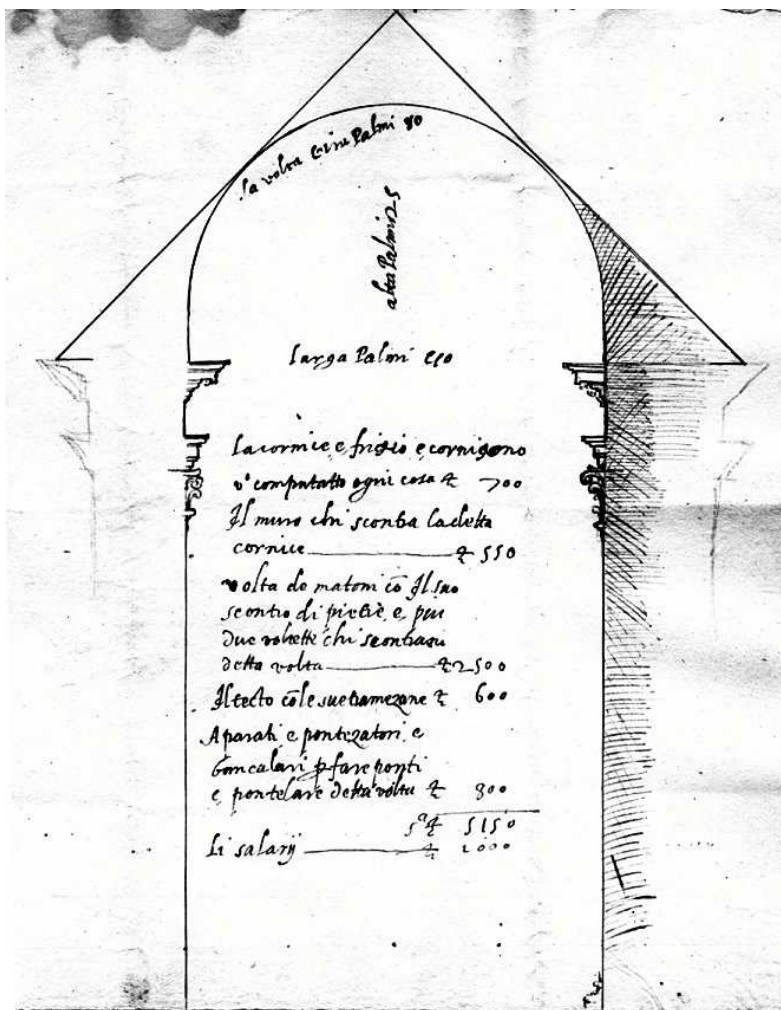 la volta gira Palmi 80
alta Palmi 25
larga Palmi 50
la cornice e frigio e cornigono
v' computatto ogni cosa ₤ 700
Il muro chi scontra la detta
cornice ₤ 550
volta do matoni cõ Il suo
scontro di pietre, e, piu
due voltette chi scontrano
detta volta ₤ 2500
Il tecto cõ le sue tramezane ₤ 600
Aparati e pontezatori, e
bancalari p fare ponti
e pontelare detta volta ₤ 800
sᵃ ₤ 5150
Li salarij ₤ 1000